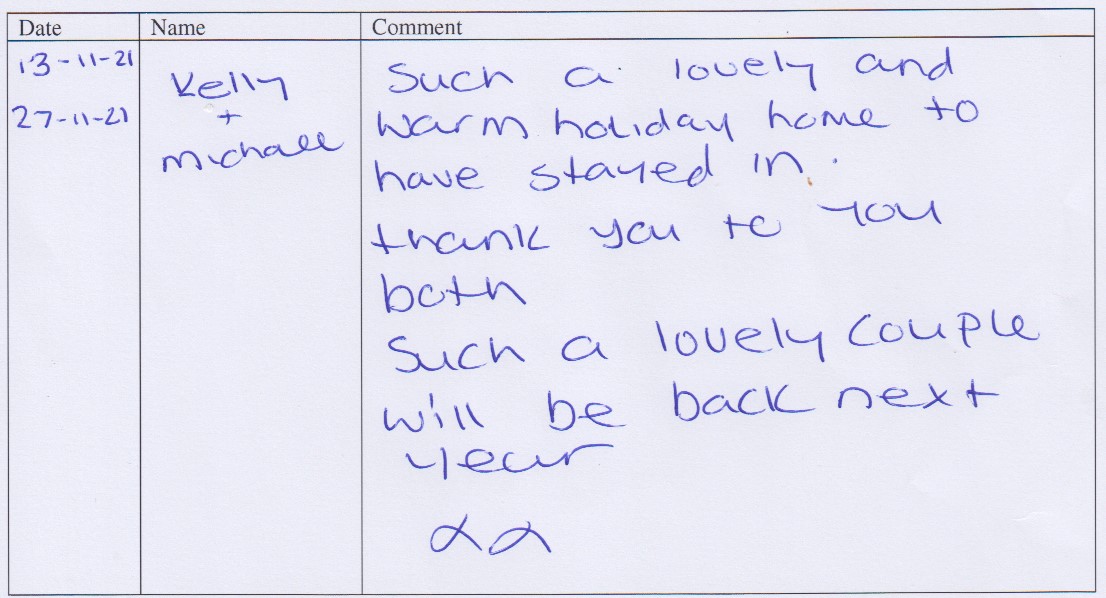 Date Name Comment
13-11-21
27-11-21
Kelly
+
michael
Such a lovely and
warm holiday home to
have stayed in.
thank you to you
both
Such a lovely couple
will be back next
year
xx